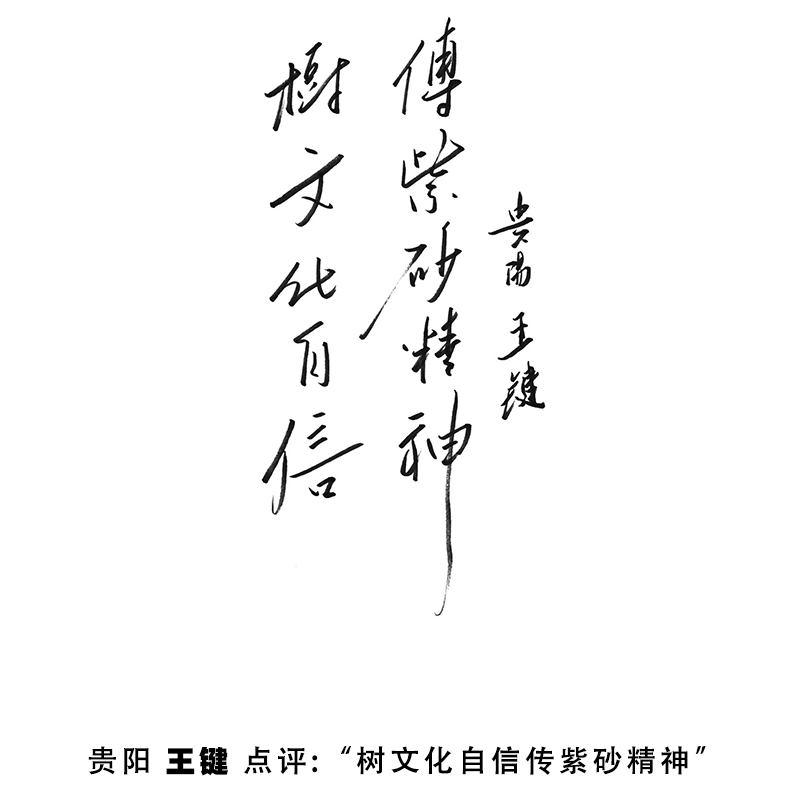 樹文化自信
傳紫砂精神
贵阳王键
贵阳 王键 点评:“树文化自信传紫砂精神”